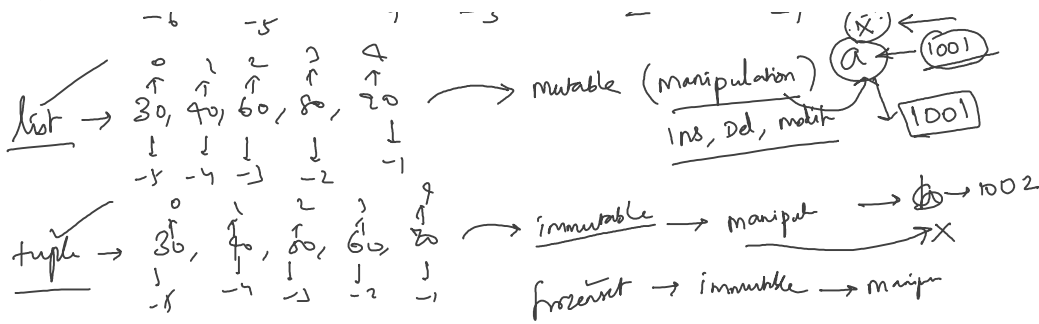 -6 -5
x
0 1 2 3 4 a 1001
list → 30, 40, 60, 80, 90 mutable (manipulation)
Ins, Del, modif 1001
-5 -4 -3 -2 -1
0 1 2 3 4
tuple → 30, 40, 50, 60, 20 immutable → manipul → b → 1002
x
-5 -4 -3 -2 -1
frozenset → immutable → manipu